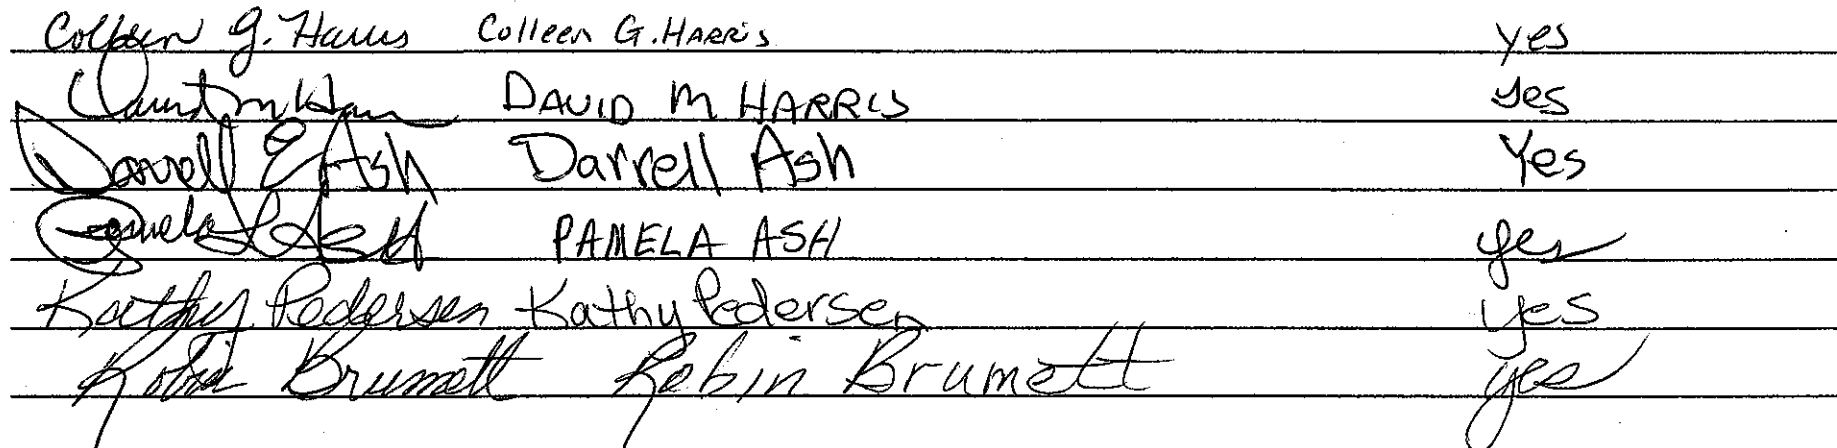 Colleen G. Harris Colleen G. HARRIS yes
David M Harris DAVID M HARRIS yes
Darrell E Ash Darrell Ash Yes
Pamela L Ash PAMELA ASH yes
Kathy Pedersen Kathy Pedersen yes
Robin Brumett Robin Brumett yes